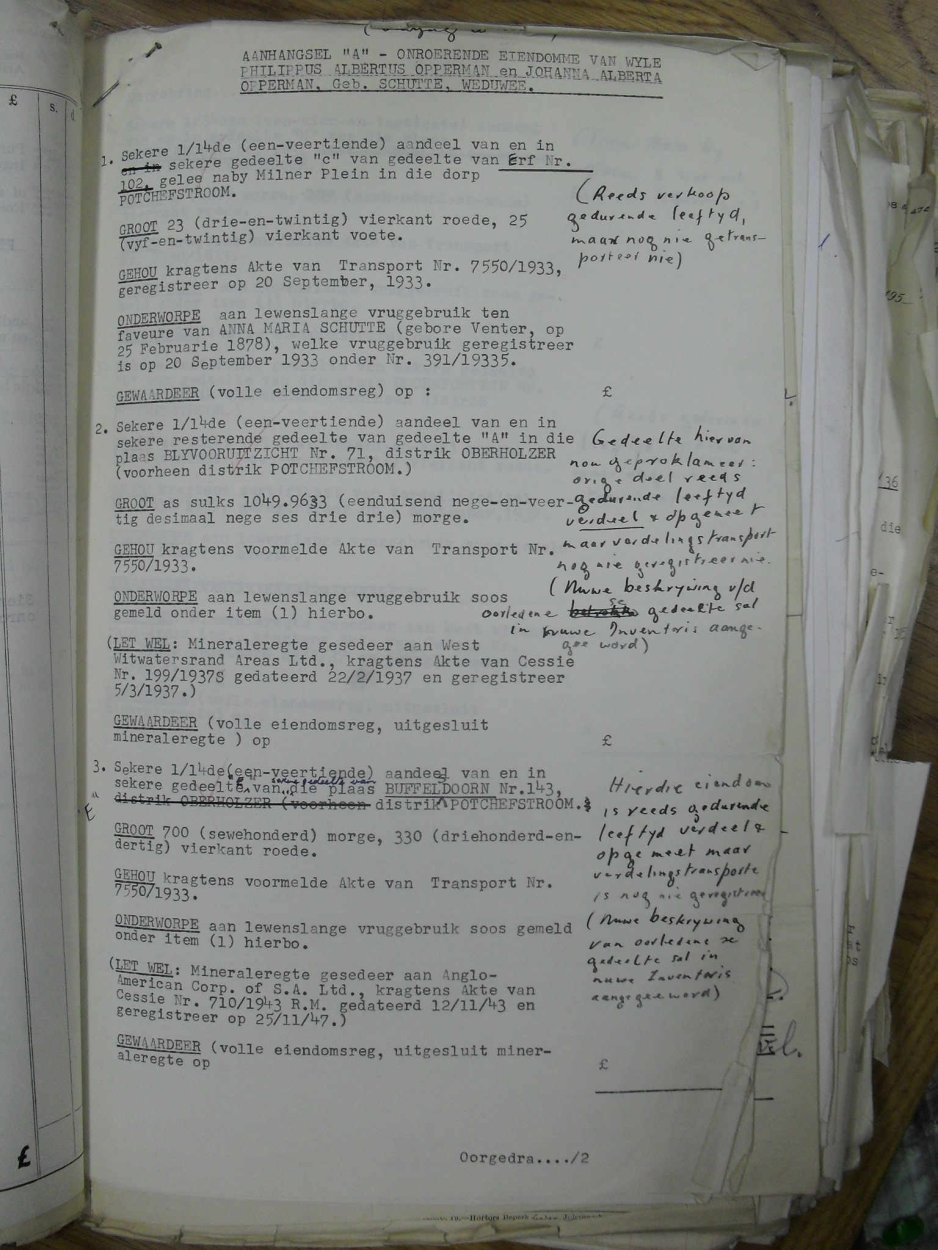 AANHANGSEL "A" - ONROERENDE EIENDOMME VAN WYLE
PHILIPPUS ALBERTUS OPPERMAN en JOHANNA ALBERTA
OPPERMAN, Geb. SCHUTTE, WEDUWEE.
1. Sekere 1/14de (een-veertiende) aandeel van en in
en in sekere gedeelte "c" van gedeelte van Erf Nr.
102, gelee naby Milner Plein in die dorp
POTCHEFSTROOM.
(Reeds verkoop
gedurende leeftyd,
maar nog nie getrans-
porteer nie)
GROOT 23 (drie-en-twintig) vierkant roede, 25
(vyf-en-twintig) vierkant voete.
GEHOU kragtens Akte van Transport Nr. 7550/1933,
geregistreer op 20 September, 1933.
ONDERWORPE aan lewenslange vruggebruik ten
faveure van ANNA MARIA SCHUTTE (gebore Venter, op
25 Februarie 1878), welke vruggebruik geregistreer
is op 20 September 1933 onder Nr. 391/1933S.
GEWAARDEER (volle eiendomsreg) op : £
2. Sekere 1/14de (een-veertiende) aandeel van en in
sekere resterende gedeelte van gedeelte "A" in die
plaas BLYVOORUITZICHT Nr. 71, distrik OBERHOLZER
(voorheen distrik POTCHEFSTROOM.)
GROOT as sulks 1049.9633 (eenduisend nege-en-veer-
tig desimaal nege ses drie drie) morge.
GEHOU kragtens voormelde Akte van Transport Nr.
7550/1933.
Gedeelte hiervan
nou geproklameer:
orige deel reeds
gedurende leeftyd
verdeel & opgemeet
maar verdelingstransport
nog nie geregistreer nie.
(Nuwe beskrywing v/d
oorledene se gedeelte sal
in nuwe Inventaris aange-
gee word)
ONDERWORPE aan lewenslange vruggebruik soos
gemeld onder item (1) hierbo.
(LET WEL: Mineraleregte gesedeer aan West
Witwatersrand Areas Ltd., kragtens Akte van Cessie
Nr. 199/1937S gedateerd 22/2/1937 en geregistreer
5/3/1937.)
GEWAARDEER (volle eiendomsreg, uitgesluit
mineraleregte ) op £
3. Sekere 1/14de (een-veertiende) aandeel van en in
sekere gedeelte "B" van sekere gedeelte van die plaas BUFFELDOORN Nr.143,
distrik OBERHOLZER (voorheen distrik POTCHEFSTROOM.)
"E"
GROOT 700 (sewehonderd) morge, 330 (driehonderd-en-
dertig) vierkant roede.
GEHOU kragtens voormelde Akte van Transport Nr.
7550/1933.
Hierdie eiendom
is reeds gedurende
leeftyd verdeel &
opgemeet maar
verdelingstransporte
is nog nie geregistreer
(Nuwe beskrywing
van oorledene se
gedeelte sal in
nuwe Inventaris
aangegee word)
ONDERWORPE aan lewenslange vruggebruik soos gemeld
onder item (1) hierbo.
(LET WEL: Mineraleregte gesedeer aan Anglo-
American Corp. of S.A. Ltd., kragtens Akte van
Cessie Nr. 710/1943 R.M. gedateerd 12/11/43 en
geregistreer op 25/11/47.)
GEWAARDEER (volle eiendomsreg, uitgesluit miner-
aleregte op £
Oorgedra..../2
£ s. d.
£